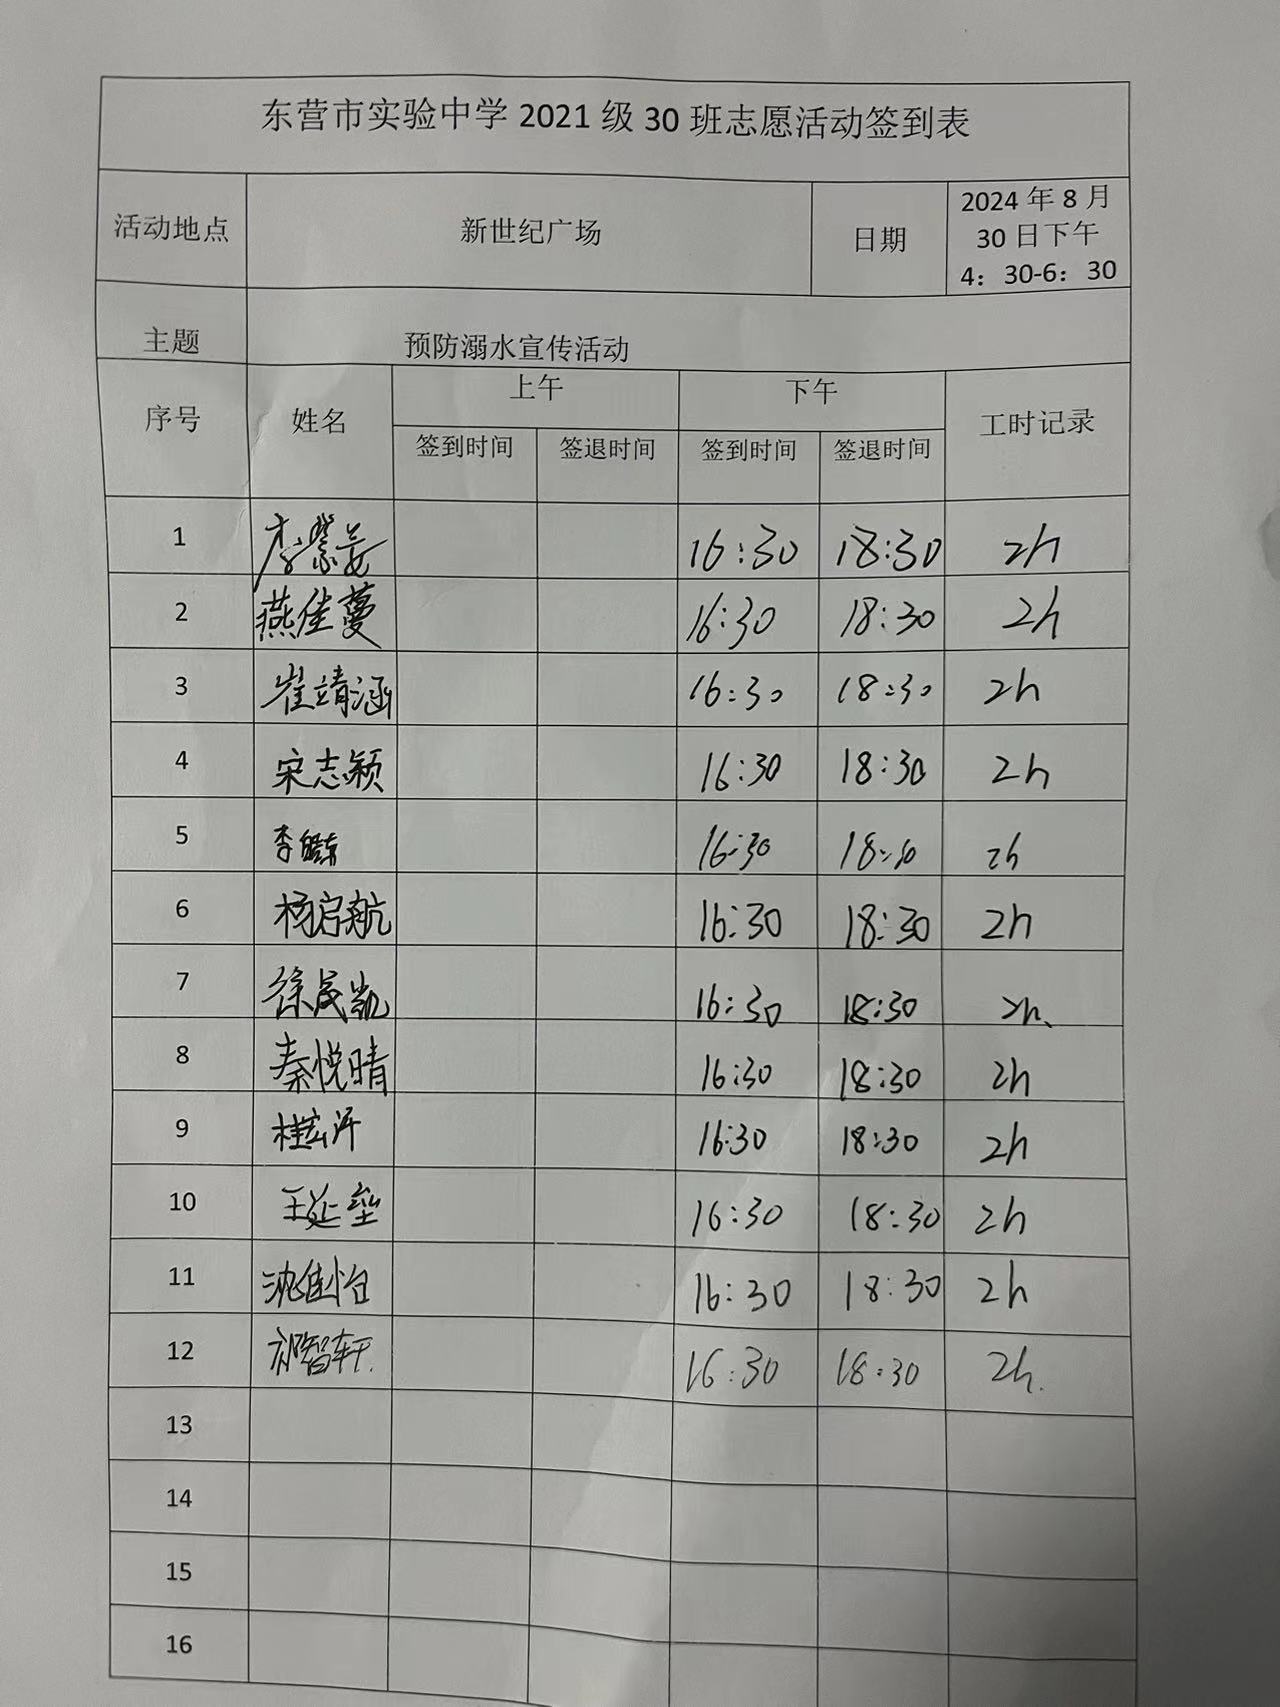 东营市实验中学 2021 级 30 班志愿活动签到表
活动地点 新世纪广场 日期 2024 年 8 月 30 日下午 4：30-6：30
主题 预防溺水宣传活动
序号 姓名 上午 下午 工时记录
签到时间 签退时间 签到时间 签退时间
1 李縈姜 16:30 18:30 2h
2 燕佳蔓 16:30 18:30 2h
3 崔靖涵 16:30 18:30 2h
4 宋志颖 16:30 18:30 2h
5 李 16:30 18:30 2h
6 杨启航 16:30 18:30 2h
7 徐晟凯 16:30 18:30 2h、
8 秦悦晴 16:30 18:30 2h
9 桂宏 16:30 18:30 2h
10 王延 16:30 18:30 2h
11 沈佳怡 16:30 18:30 2h
12 智轩. 16:30 18:30 2h.
13
14
15
16